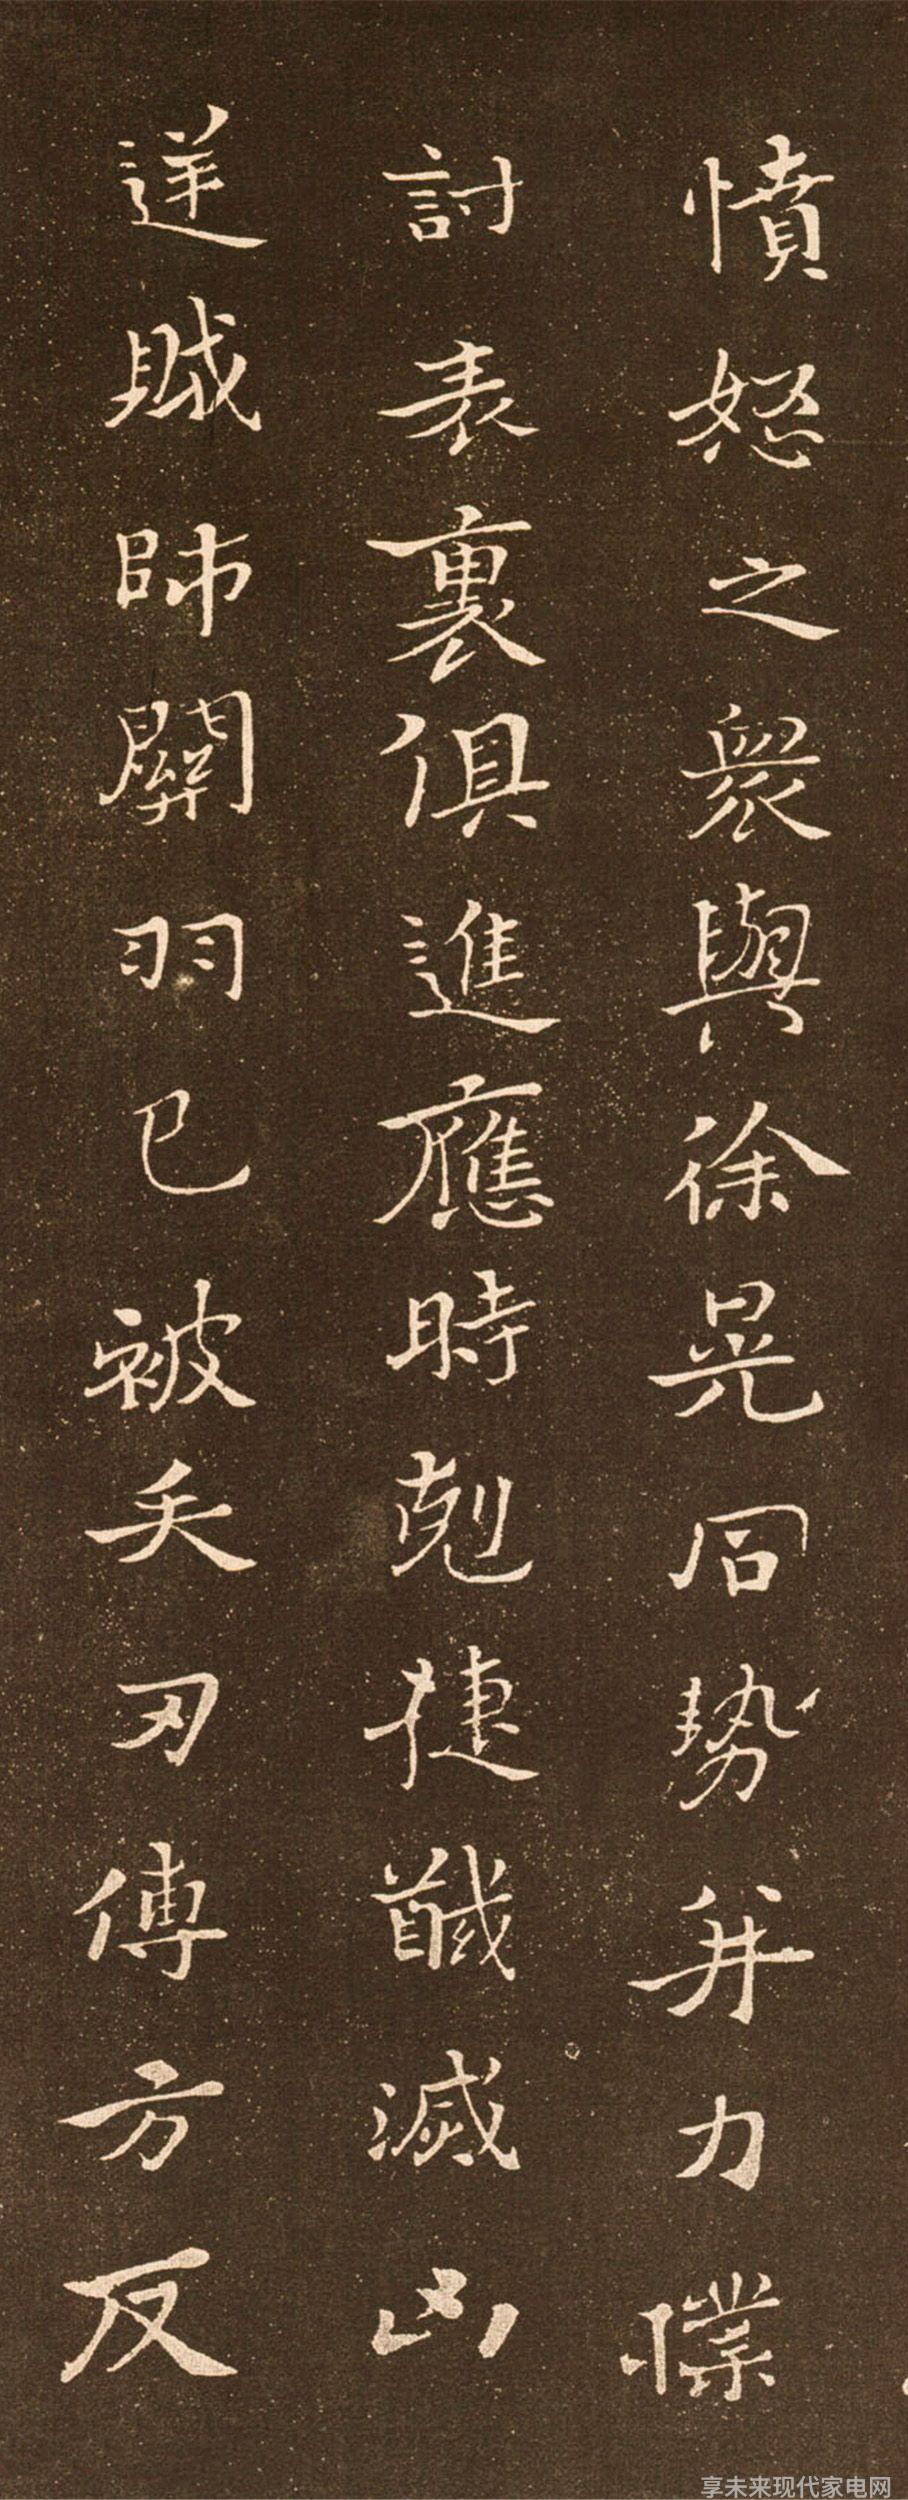 憤怒之衆與徐晃同勢并力撲
討表裏俱進應時剋捷馘滅凶
逆賊帥關羽已被矢刃傅方反
享未来现代家电网